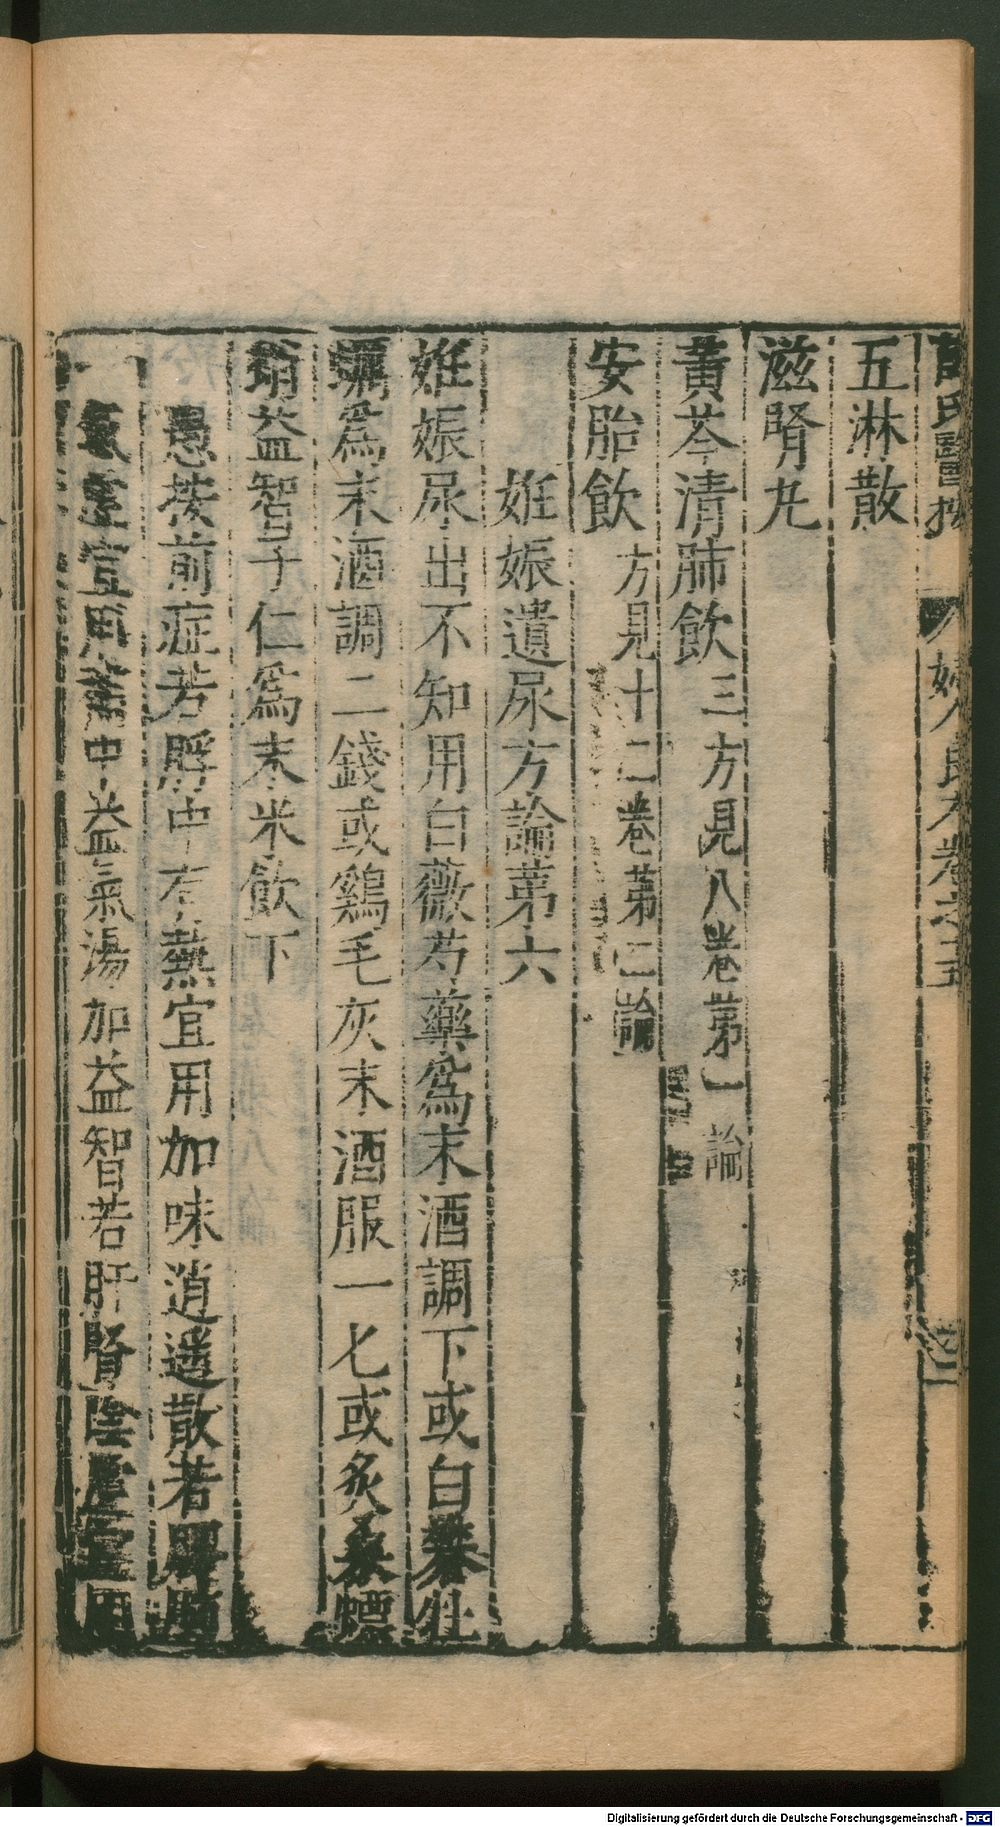 氏醫按 婦人良方卷之五
五淋散
滋腎丸
黃芩清肺飲 三方見八卷第一論
安胎飲 方見十二卷第二論
姙娠遺尿方論第六
姙娠尿出不知用白薇芍藥為末酒調下或白礬牡
蠣為末酒調二錢或鷄毛灰末酒服一匕或炙桑螵
蛸益智子仁為末米飲下
愚按前症若脬中有熱宜用加味逍遙散若脾肺
氣虛宜用補中益氣湯加益智若肝腎陰虛宜用
Digitalisierung gefördert durch die Deutsche Forschungsgemeinschaft - DFG